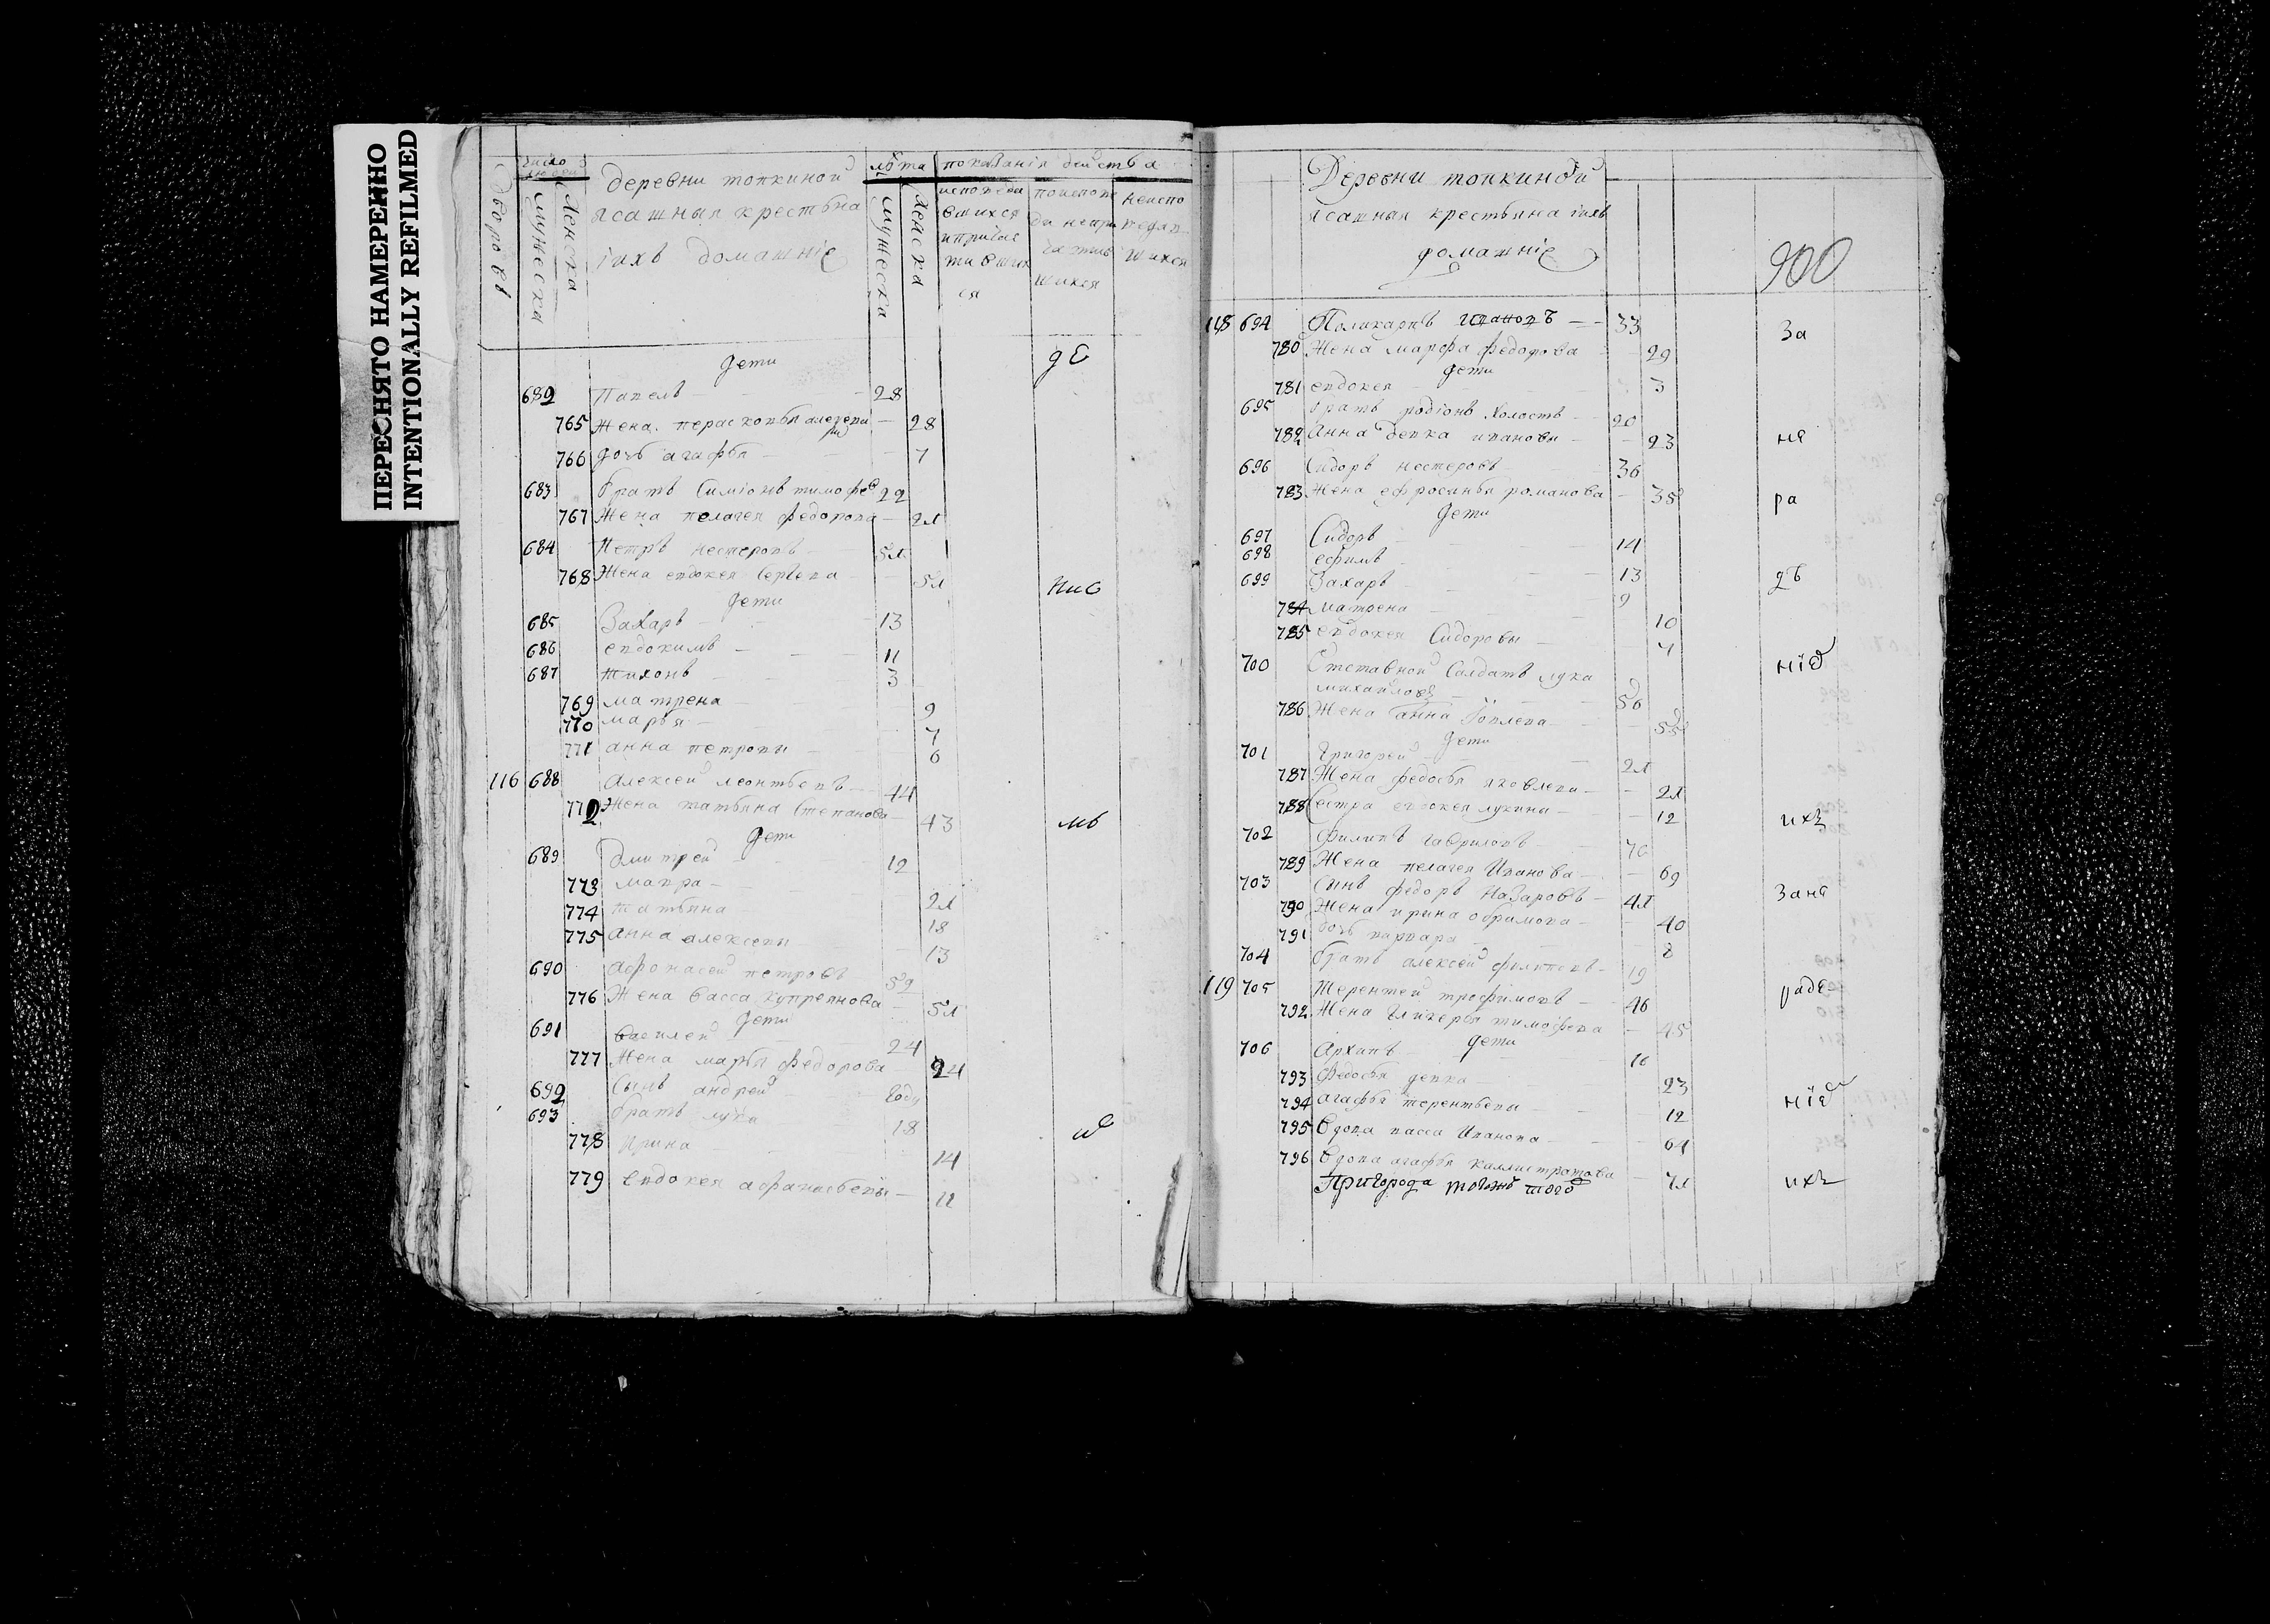 ПЕРЕСНЯТО НАМЕРЕННО
INTENTIONALLY REFILMED
дворовъ
число людей
мужеска
женска
деревни топкиной
ясашныя крестьяна
ихъ домашніе
лѣта
мужеска
женска
показанія действа
исповеда
вшихся
и причас
тивших
ся
по испове
ди не при
частив
шихся
неиспо
ведав
шихся
дети
де
682 Павелъ 28
765 Жена 28
766 дочь агафья 7
683 братъ Симіонъ тимофе 22
767 Жена пелагея федорова 21
684 Петръ нестеровъ 51
768 Жена евдокея 51
дети
685 Захаръ 13
686 евдокимъ 11
687 тихонъ 3
769 матрена 9
770 марья 7
771 анна петровы 6
116 688 алексей леонтьевъ 44
772 Жена татьяна Степанова 43
дети
689 дмитрей 12
773 мавра 21
774 татьяна 18
775 анна алексевы 13
690 афонасей петровъ 52
776 Жена васса купреянова 51
дети
691 василей 24
777 Жена марья федорова 24
692 Сынъ андрей году
693 братъ лука 18
778 Ирина 14
779 евдокея афанасьевы 11
Деревни топкиной
ясашныя крестьяна ихъ
домашніе
900
118 694 Поликарпъ ивановъ 33 За
780 Жена марфа федорова 29
дети
781 евдокея 3
695 братъ родіонъ холостъ 20
782 Анна девка иванова 23 не
696 Сидоръ нестеровъ 36
783 Жена ефросинья романова 35 ра
дети
697 Сидоръ 14
698 ефимъ 13
699 Захаръ 9
784 матрена 10
785 евдокея Сидоровы 4
700 Отставной Солдатъ лука
михайловъ 56
786 Жена анна 55
дети
701 Григорей 21
787 Жена федосья яковлева 21
788 Сестра евдокея лукина 12 ихъ
702 филипъ гавриловъ 70
789 Жена пелагея Иванова 69
703 Сынъ федоръ Назаровъ 41 Зане
790 Жена ирина 40
791 дочь варвара 8
704 братъ алексей филиповъ 19
119 705 Терентей трофимовъ 46 раде
792 Жена Гликерья тимофева 45
дети
706 Архипъ 16
793 Федосья девка 23
794 агафья терентьевы 12
795 Вдова васса Иванова 61
796 Вдова агафья каллистратова 71 ихъ
Пригорода того